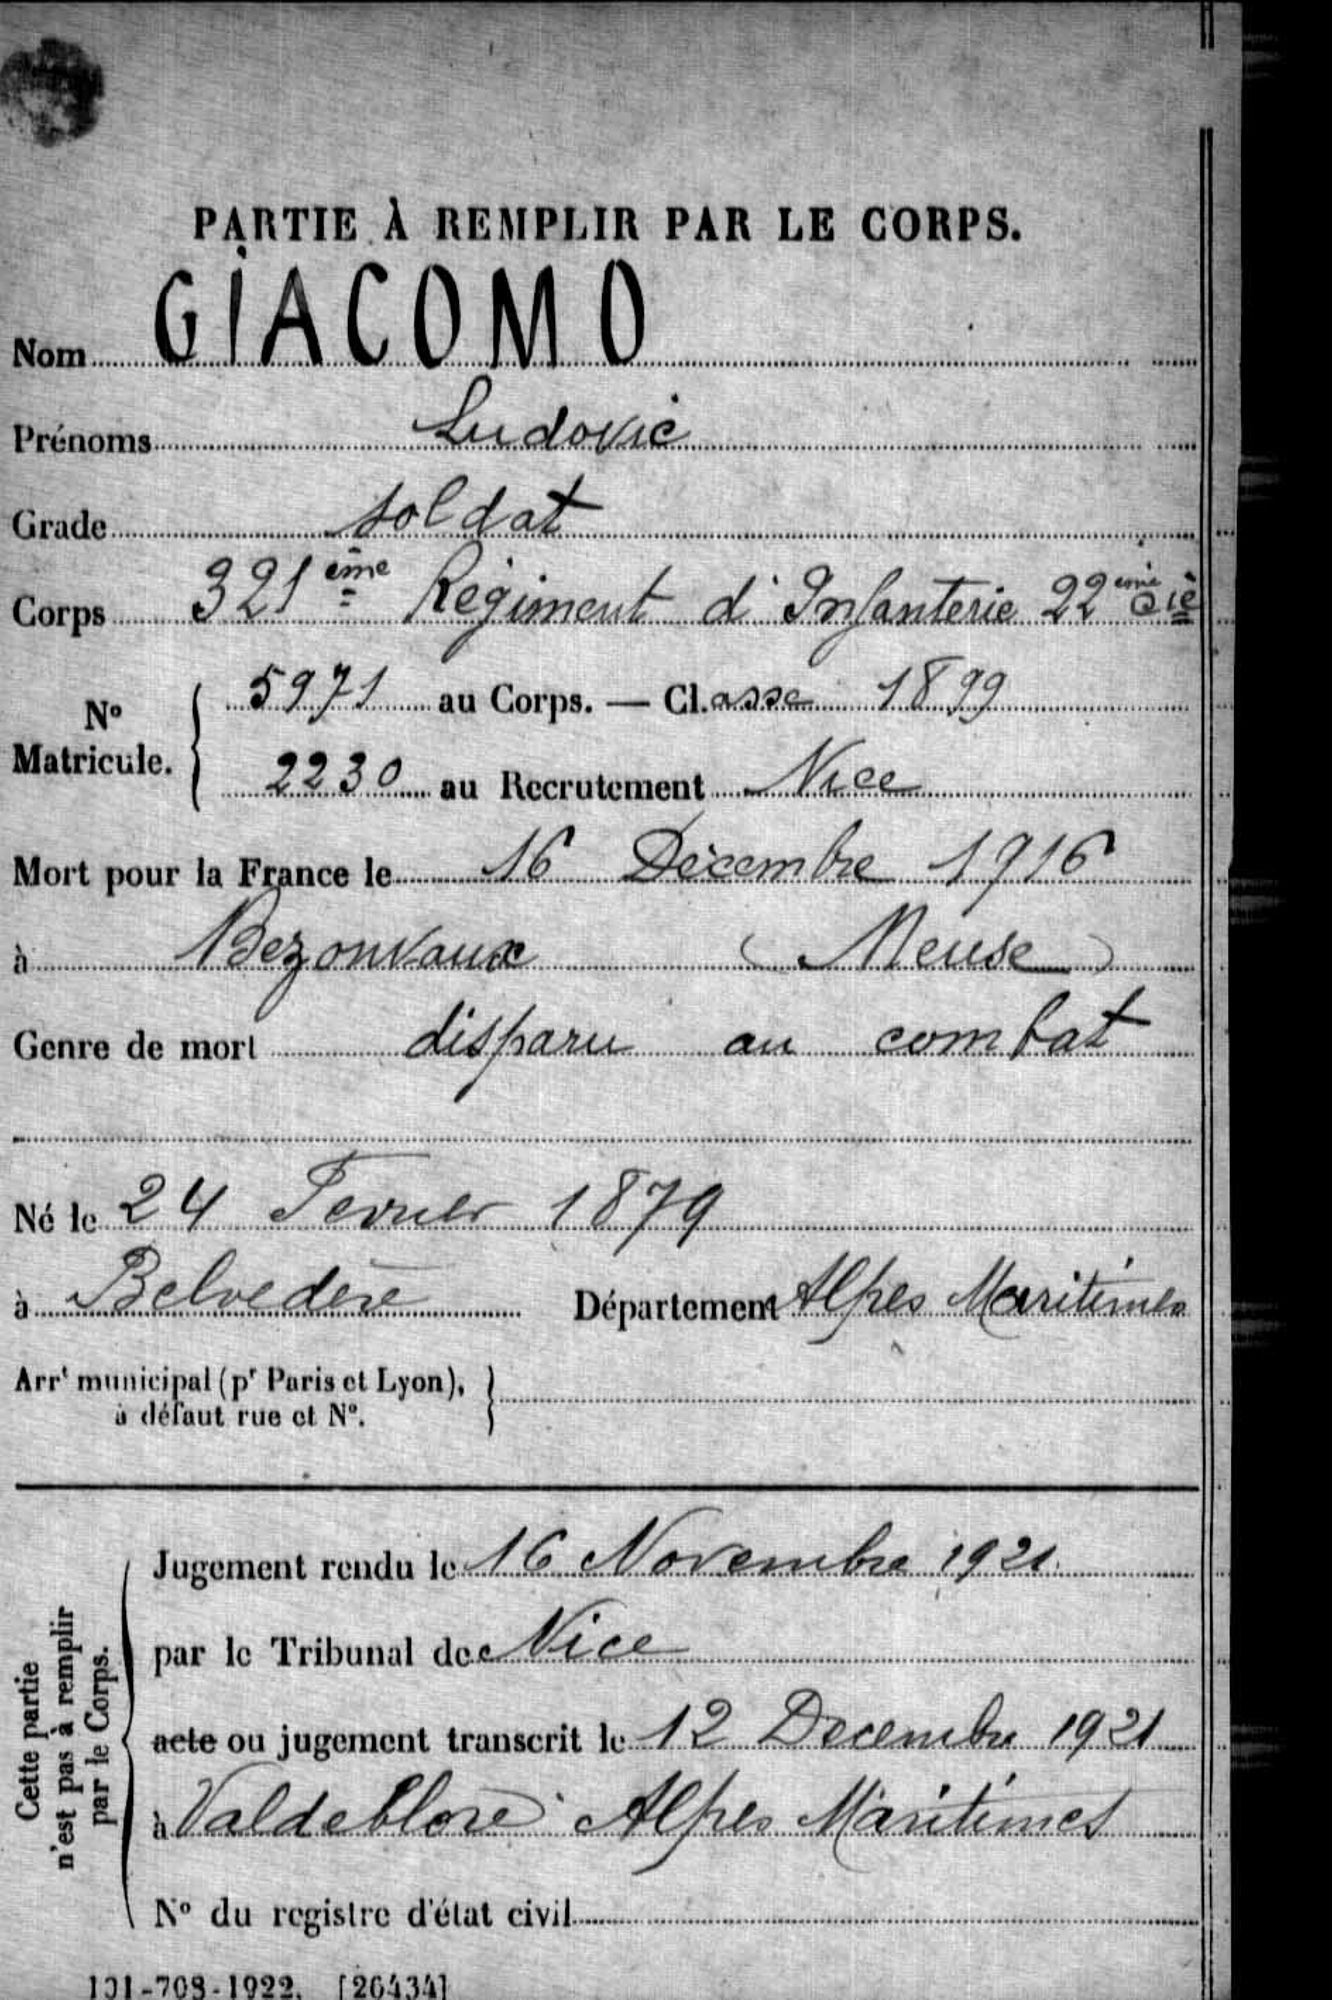 PARTIE À REMPLIR PAR LE CORPS.
Nom GIACOMO
Prénoms Ludovic
Grade soldat
Corps 321ème Régiment d'Infanterie 22ème Cie
N° Matricule. 5971 au Corps. — Classe 1899
2230 au Recrutement Nice
Mort pour la France le 16 Décembre 1916
à Bezonvaux (Meuse)
Genre de mort disparu au combat
Né le 24 Fevrier 1879
à Belvedère Département Alpes Maritimes
Arrt municipal (pr Paris et Lyon),
à défaut rue et N°.
Cette partie
n'est pas à remplir
par le Corps.
Jugement rendu le 16 Novembre 1921
par le Tribunal de Nice
acte ou jugement transcrit le 12 Decembre 1921
à Valdeblore Alpes Maritimes
N° du registre d'état civil
101-708-1922. [26434]